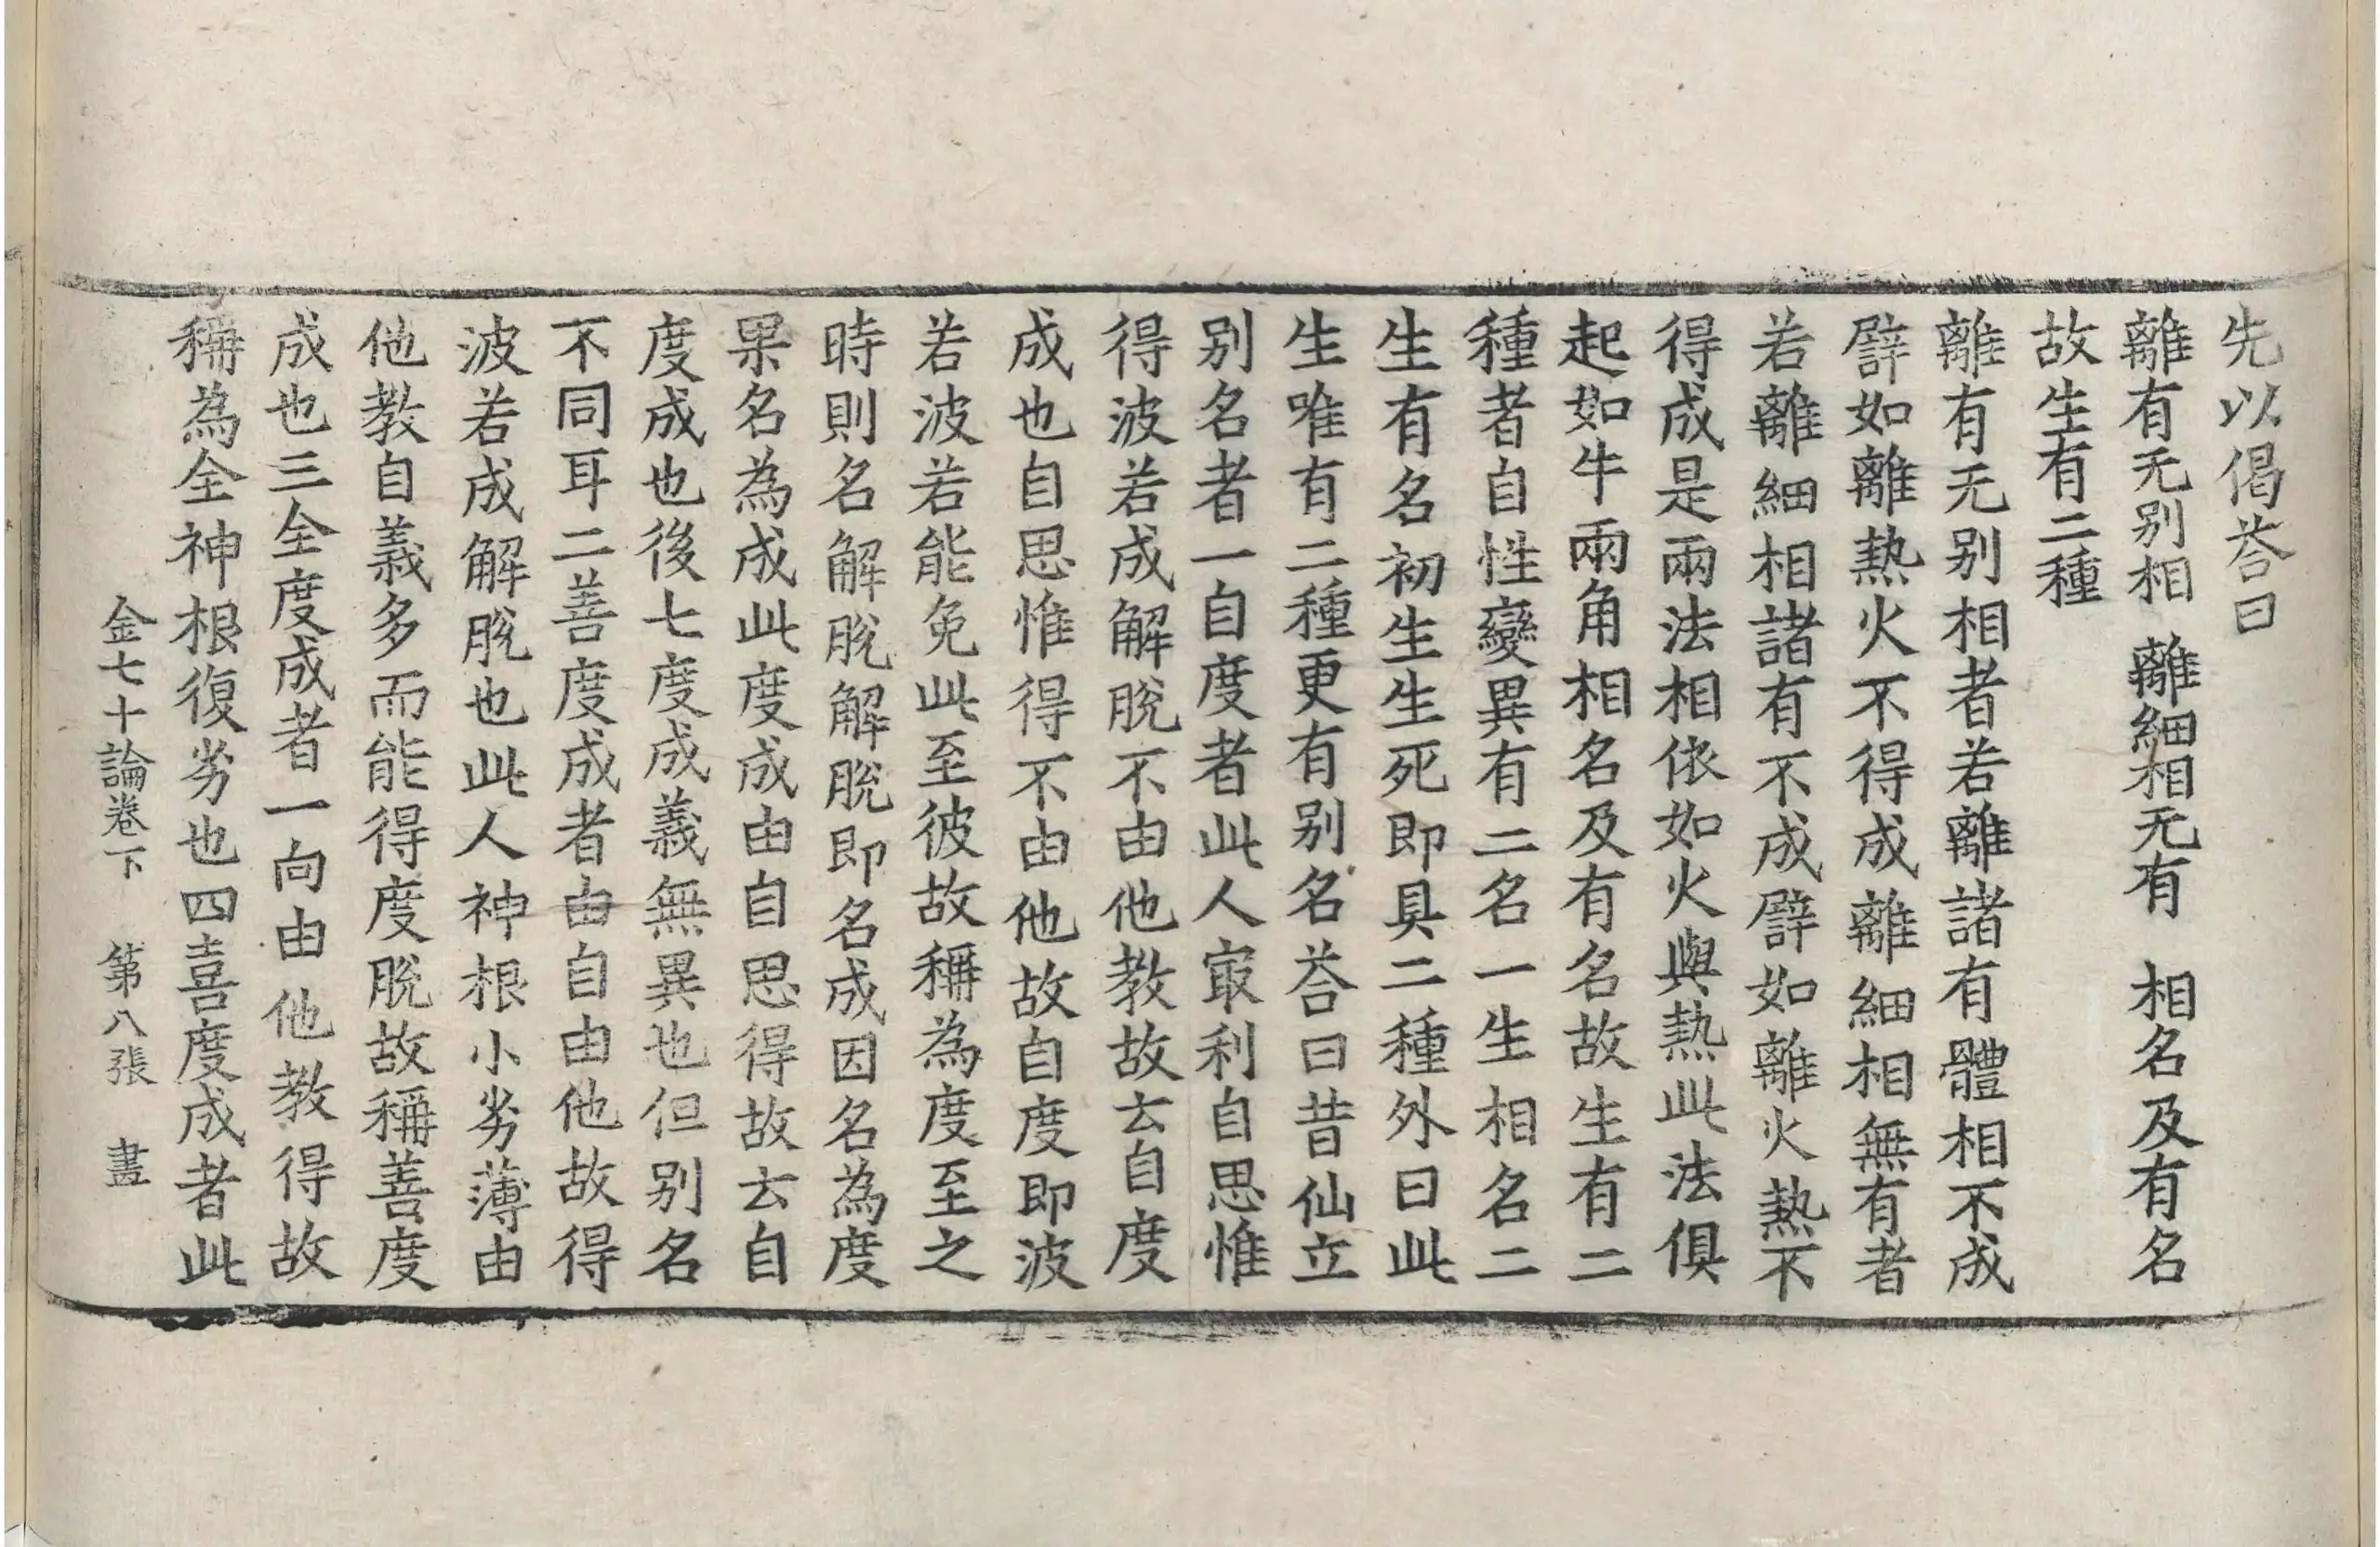 先以偈荅曰
離有无别相　離細相无有　相名及有名
故生有二種
離有无别相者若離諸有體相不成
譬如離熱火不得成離細相無有者
若離細相諸有不成譬如離火熱不
得成是兩法相依如火與熱此法俱
起如牛兩角相名及有名故生有二
種者自性變異有二名一生相名二
生有名初生生死即具二種外曰此
生唯有二種更有别名荅曰昔仙立
别名者一自度者此人㝡利自思惟
得波若成解脫不由他教故云自度
成也自思惟得不由他故自度即波
若波若能免此至彼故稱為度至之
時則名解脫解脫即名成因名為度
果名為成此度成由自思得故云自
度成也後七度成義無異也但别名
不同耳二善度成者由自由他故得
波若成解脫也此人神根小劣薄由
他教自義多而能得度脫故稱善度
成也三全度成者一向由他教得故
稱為全神根復劣也四喜度成者此
金七十論卷下　第八張　晝